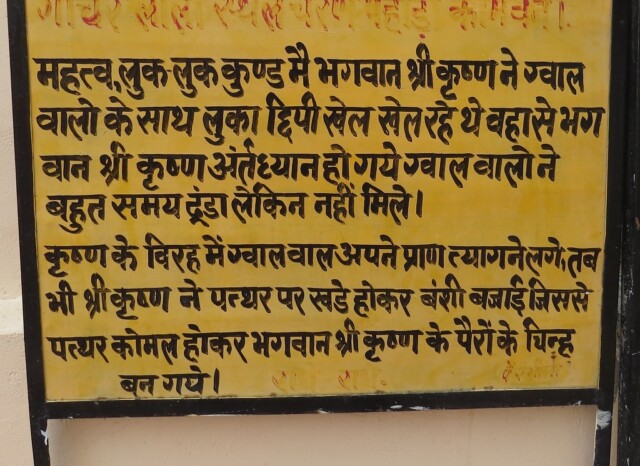 गोचर लीला स्थल चरण पहाड़ कामवन।
महत्व, लुक लुक कुण्ड मै भगवान श्री कृष्ण ने ग्वाल
वालो के साथ लुका द्दिपी खेल खेल रहे थे वहा से भग
वान श्री कृष्ण अंर्तध्यान हो गये ग्वाल वालो ने
बहुत समय ढूंडा लेकिन नहीं मिले।
कृष्ण के विरह में ग्वाल वाल अपने प्राण त्यागने लगे, तब
भी श्री कृष्ण ने पत्थर पर खडे होकर बंशी बजाई जिससे
पत्थर कोमल होकर भगवान श्री कृष्ण के पैरों के चिन्ह
बन गये।